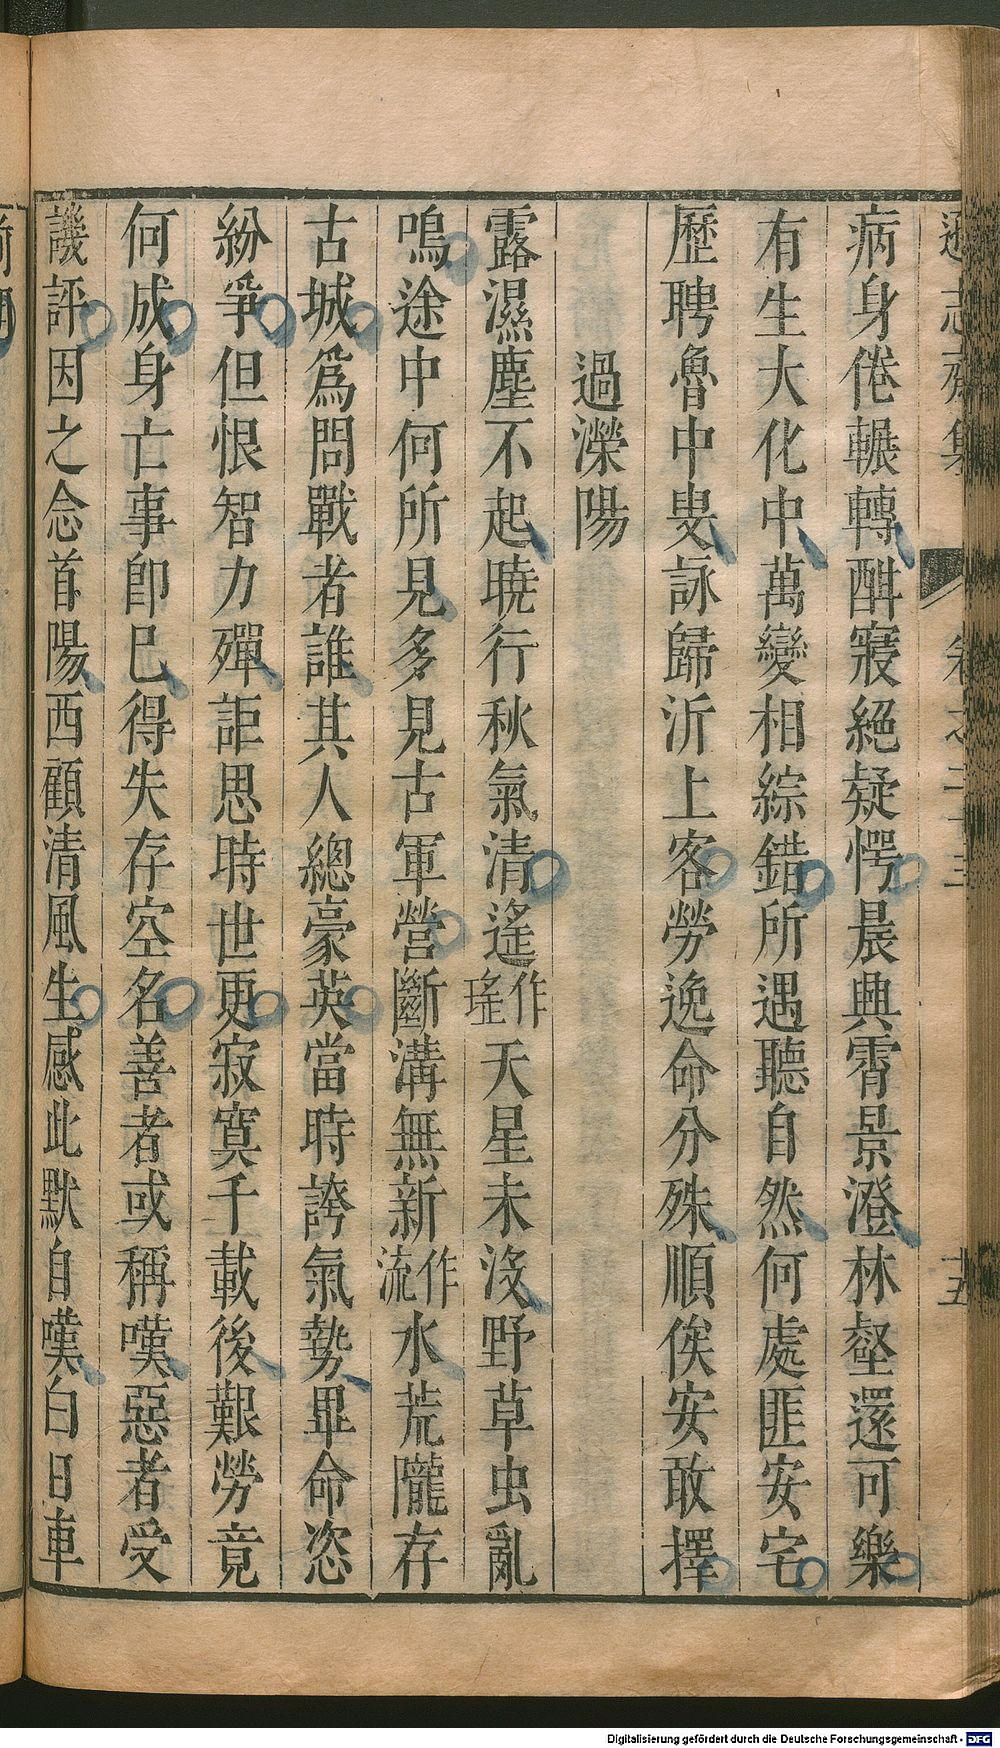 遜志齋集 卷之二十三 十五
病身倦輾轉酣寢絕疑愕晨興霽景澄林壑還可樂
有生大化中萬變相綜錯所遇聽自然何處匪安宅
歷聘魯中叟詠歸沂上客勞逸命分殊順俟安敢擇
過濚陽
露濕塵不起曉行秋氣清遙作瑤天星未沒野草虫亂
鳴途中何所見多見古軍營斷溝無新作流水荒隴存
古城爲問戰者誰其人總豪英當時誇氣勢畢命恣
紛爭但恨智力殫詎思時世更寂寞千載後艱勞竟
何成身亡事卽已得失存空名善者或稱嘆惡者受
譏評因之念首陽西顧清風生感此默自嘆白日車
Digitalisierung gefördert durch die Deutsche Forschungsgemeinschaft - DFG